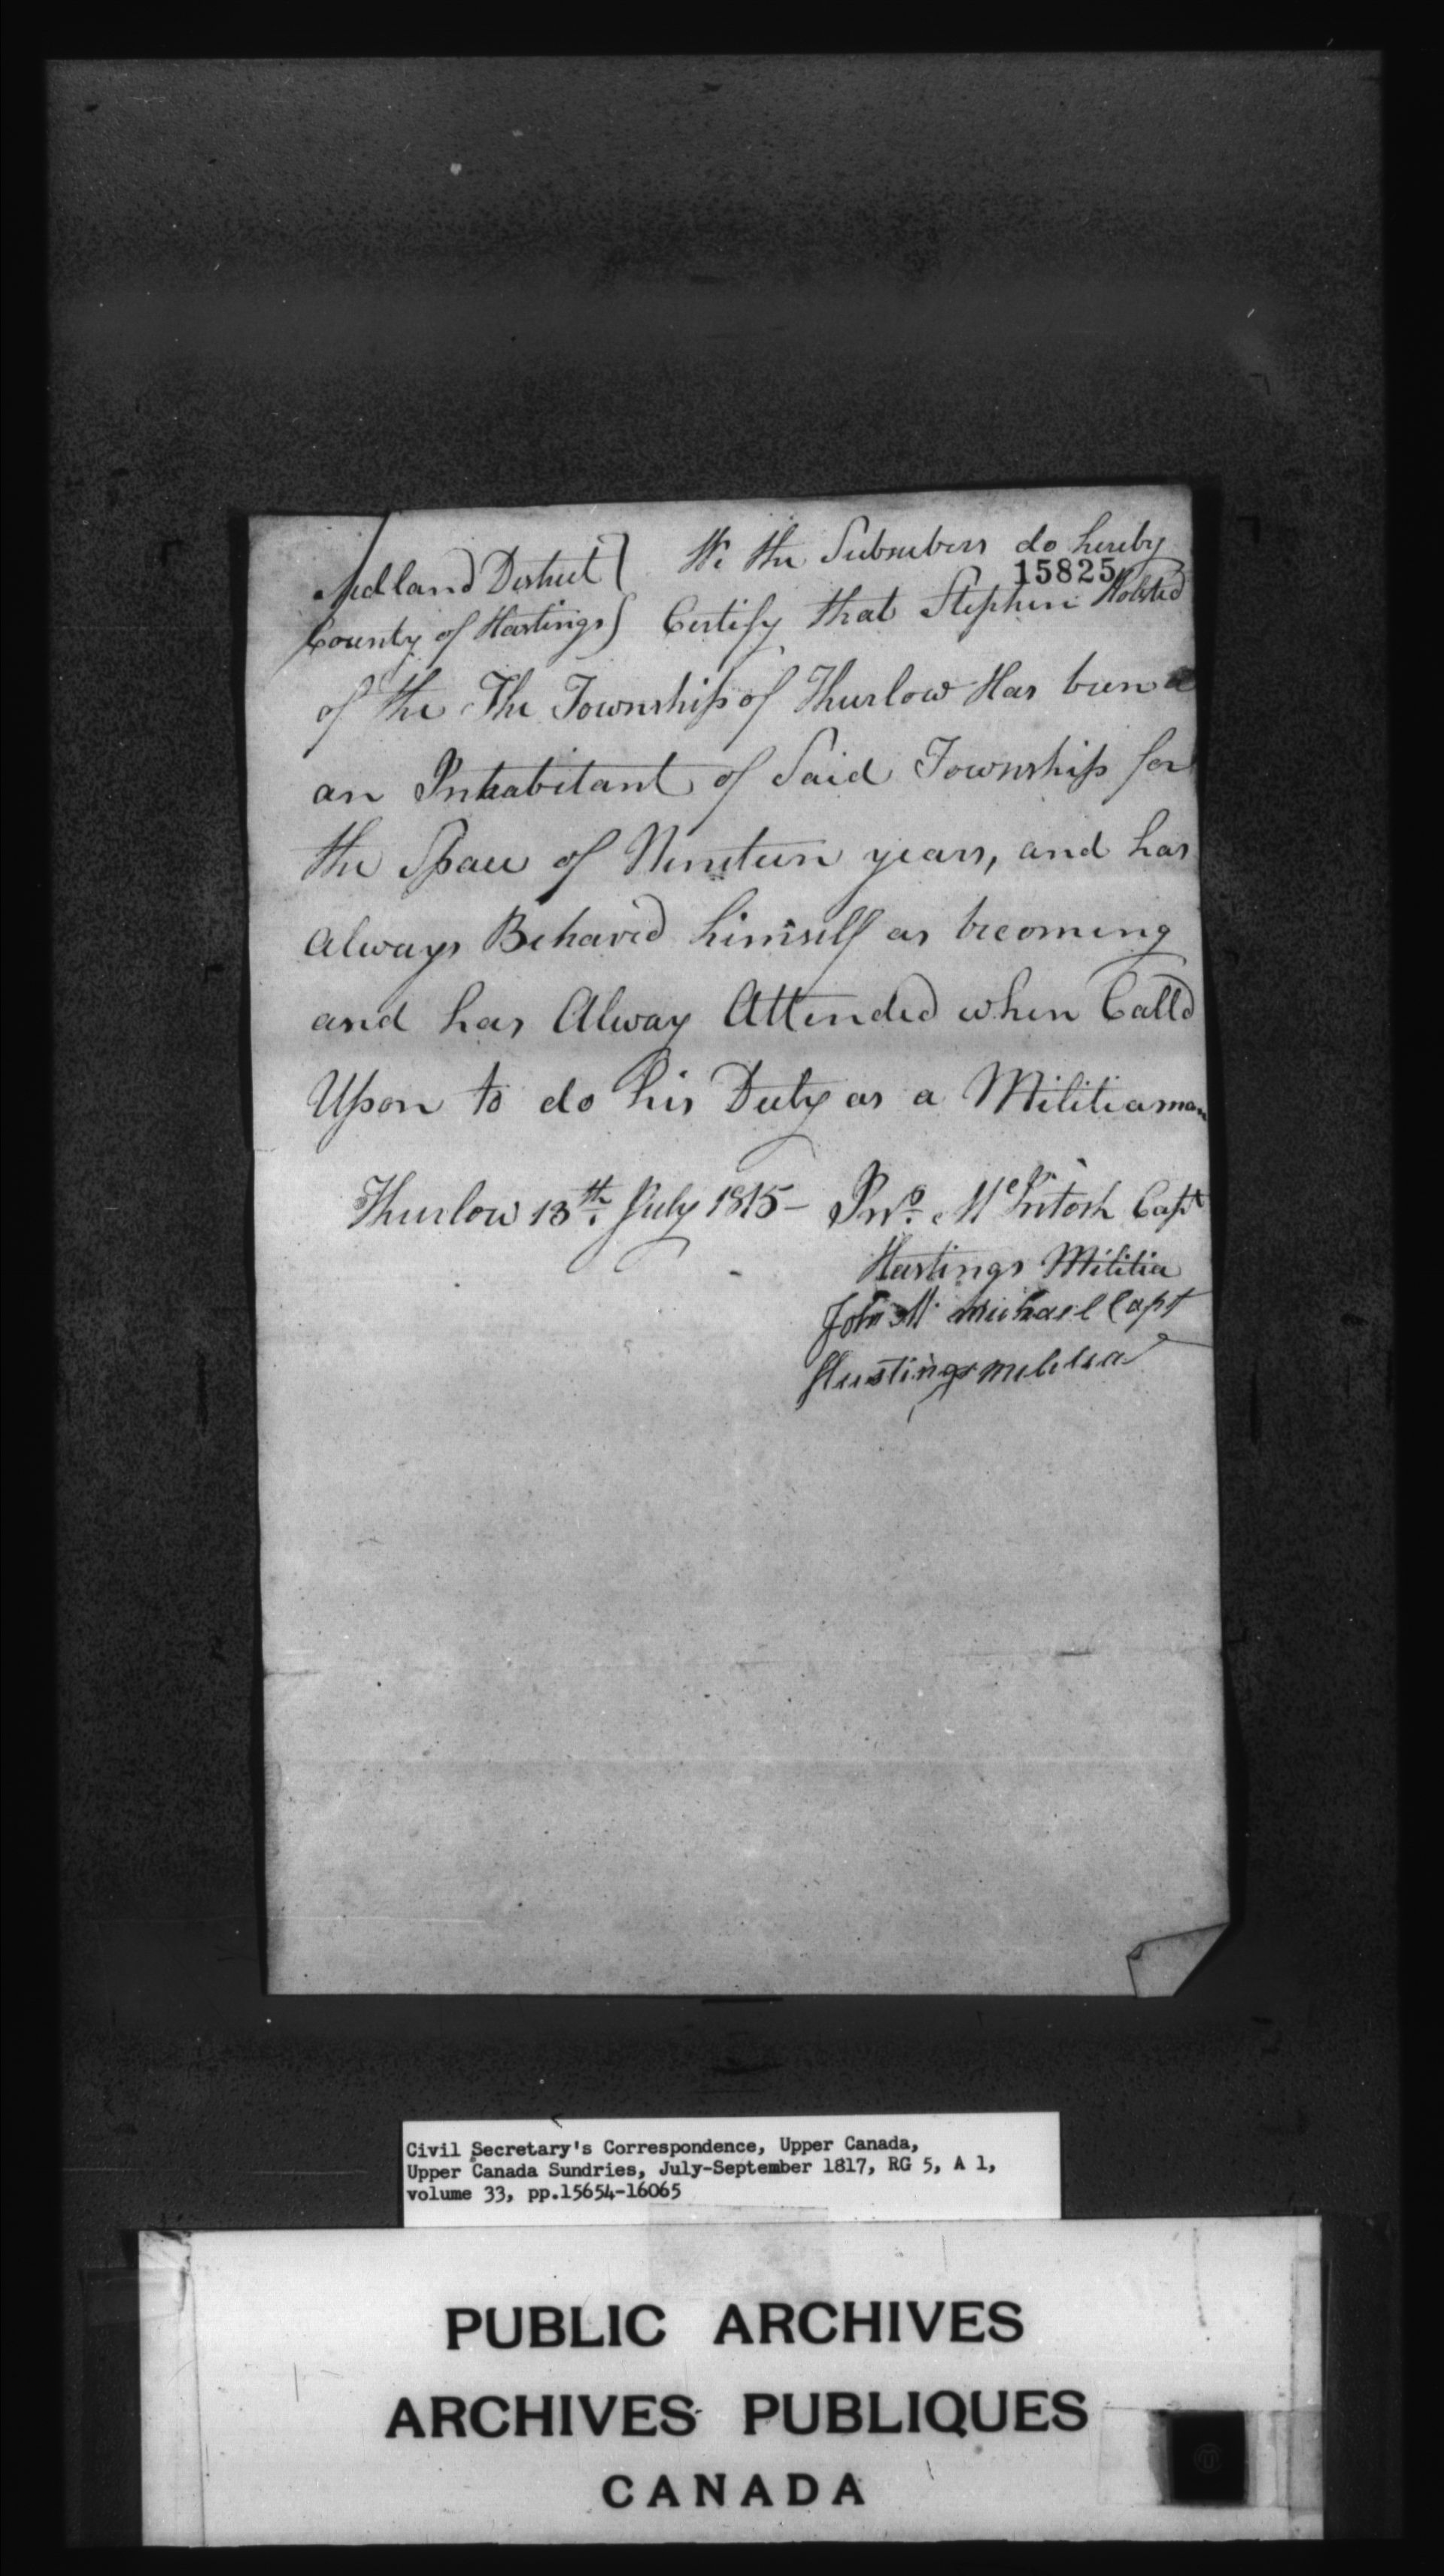 Midland District } We the Subscribers do hereby
15825
County of Hastings } Certify that Stephen Holsted
of the The Township of Thurlow Has been a
an Inhabitant of Said Township for
the Space of Nineteen years, and has
Always Behaved himself as becoming
and has Alway Attended when Call'd
Upon to do his Duty as a Militiaman
Thurlow 13th. July 1815 - Jno. McIntosh Capt
Hastings Militia
John Mc michael Capt
Hastings melitia
Civil Secretary's Correspondence, Upper Canada,
Upper Canada Sundries, July-September 1817, RG 5, A 1,
volume 33, pp.15654-16065
PUBLIC ARCHIVES
ARCHIVES PUBLIQUES
CANADA